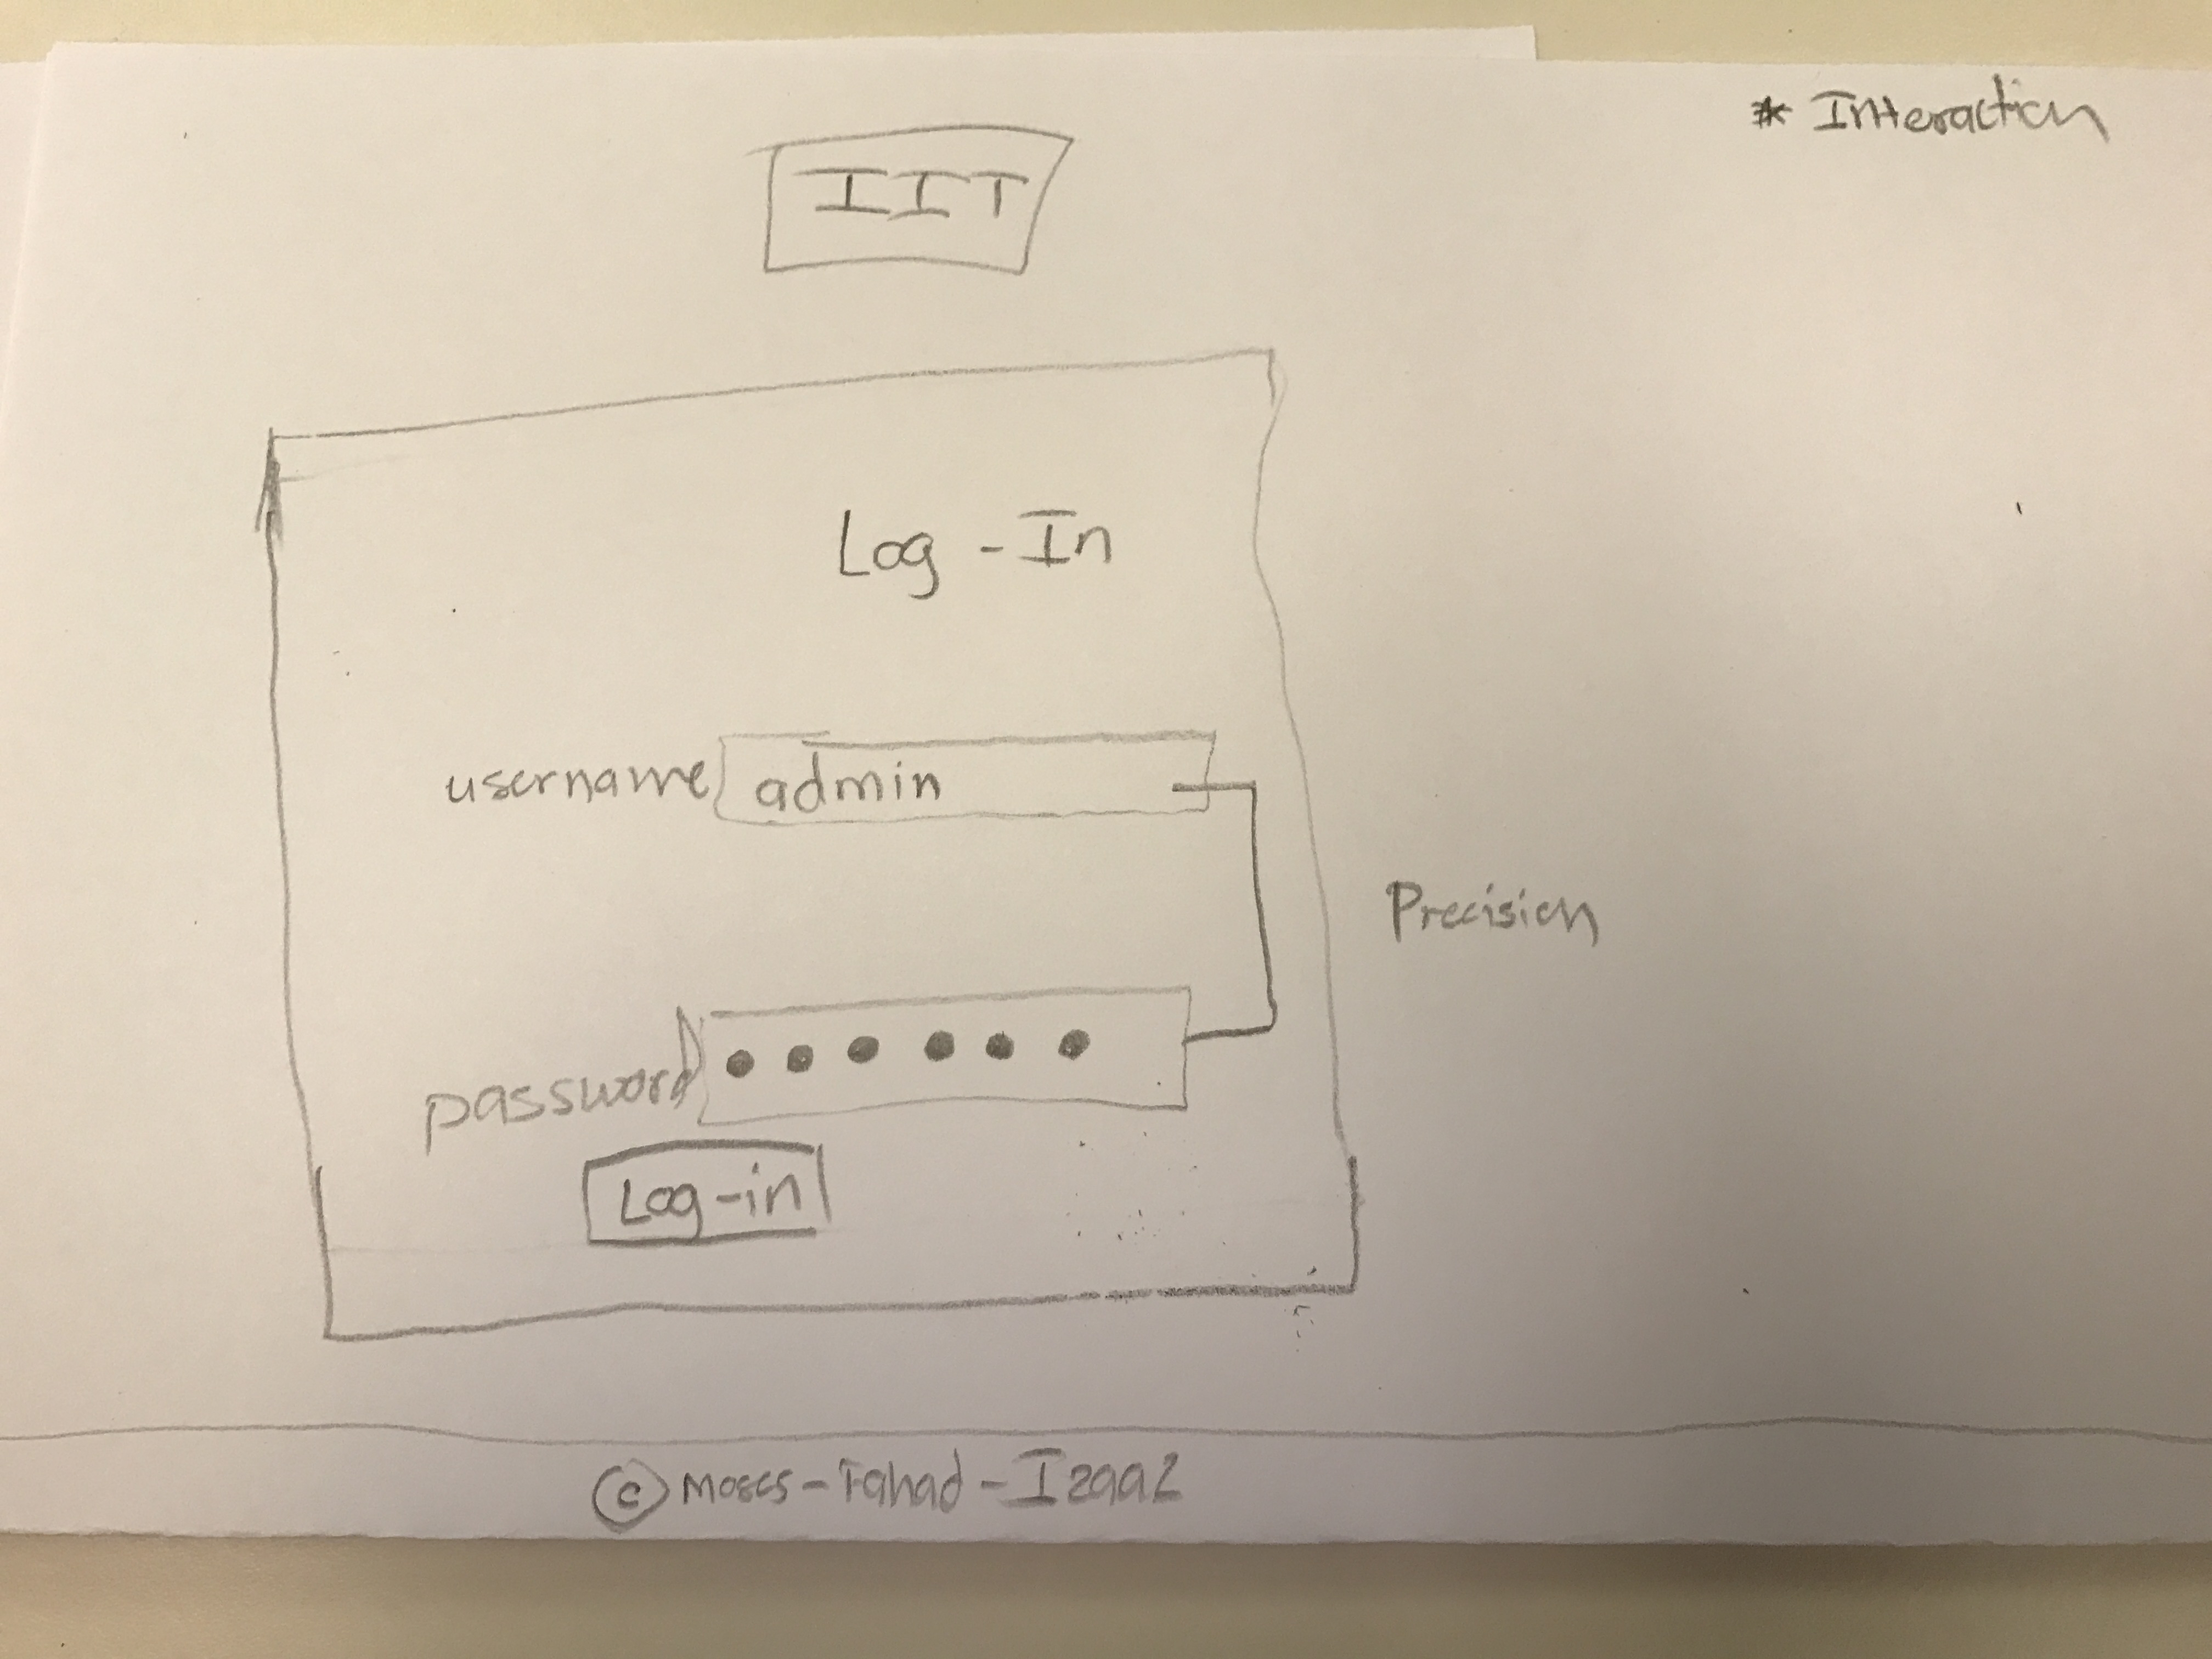 * Interaction
IIT
Log-In
username admin
password ••••••
Precision
Log-in
© Moses-Tahad-Izaal